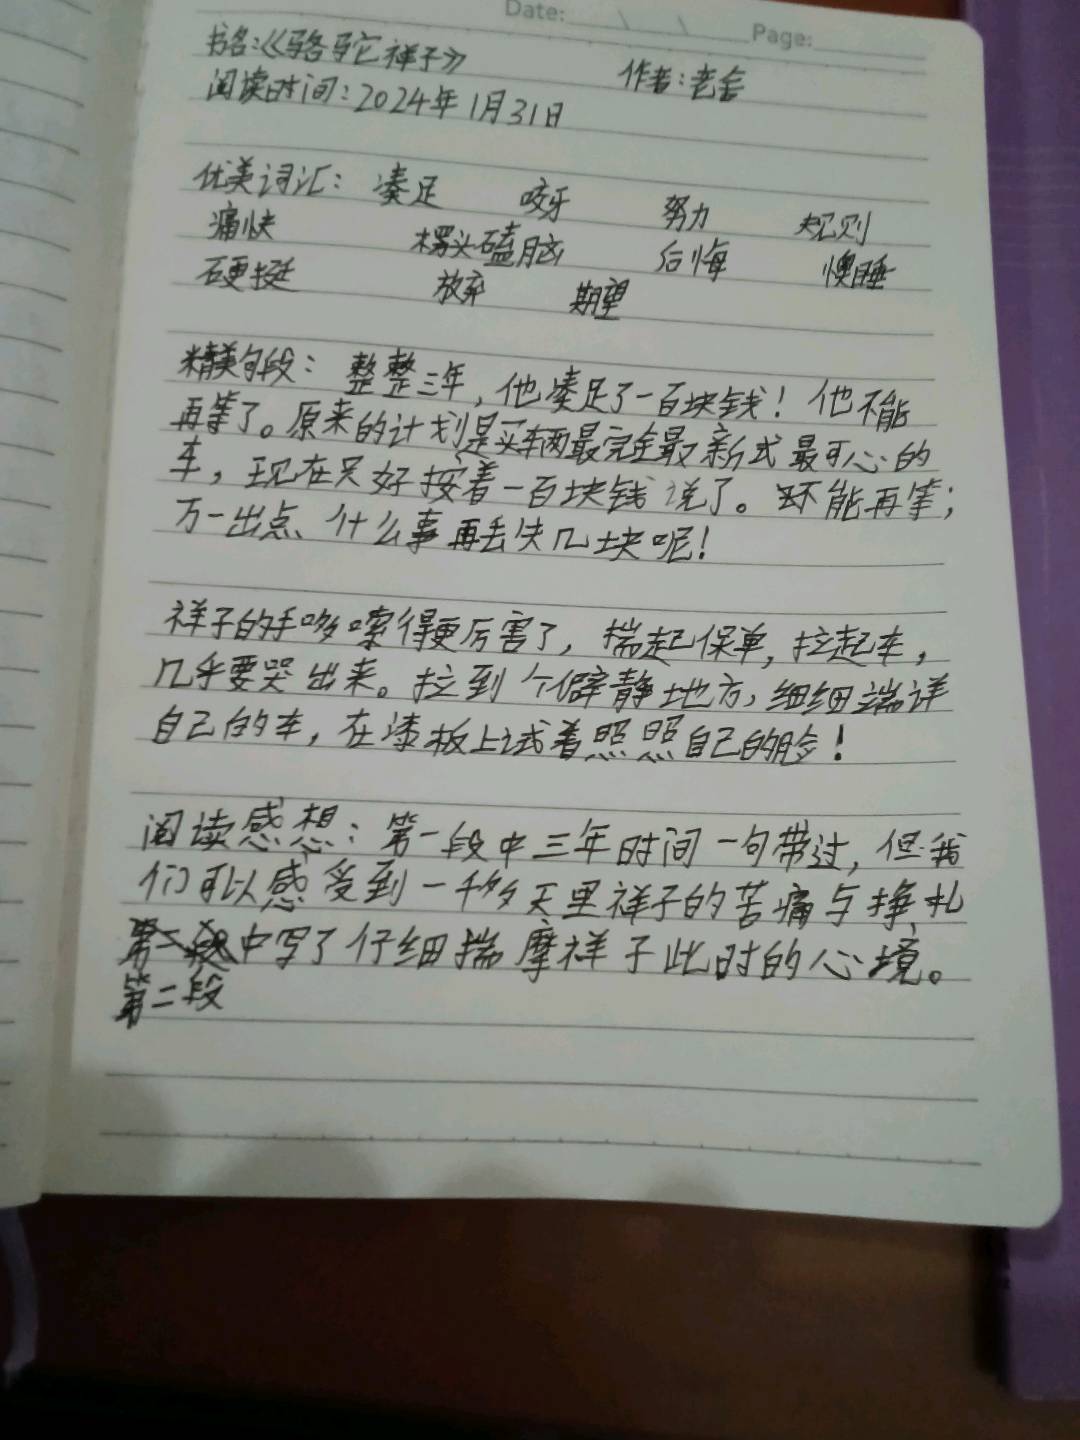 Date: Page:
书名:《骆驼祥子》 作者:老舍
阅读时间:2024年1月31日
优美词汇: 凑足 咬牙 努力 规则
痛快 楞头磕脑 后悔 懊睡
硬挺 放弃 期望
精美句段: 整整三年,他凑足了一百块钱!他不能
再等了。原来的计划是买辆最完全最新式最可心的
车,现在只好按着一百块钱说了。不能再等;
万一出点什么事再丢失几块呢!
祥子的手哆嗦得更厉害了,揣起保单,拉起车,
几乎要哭出来。拉到个僻静地方,细细端详
自己的车,在漆板上试着照照自己的脸!
阅读感想:第一段中三年时间一句带过,但我
们可以感受到一千多天里祥子的苦痛与挣扎
中写了仔细揣摩祥子此时的心境。
第二段